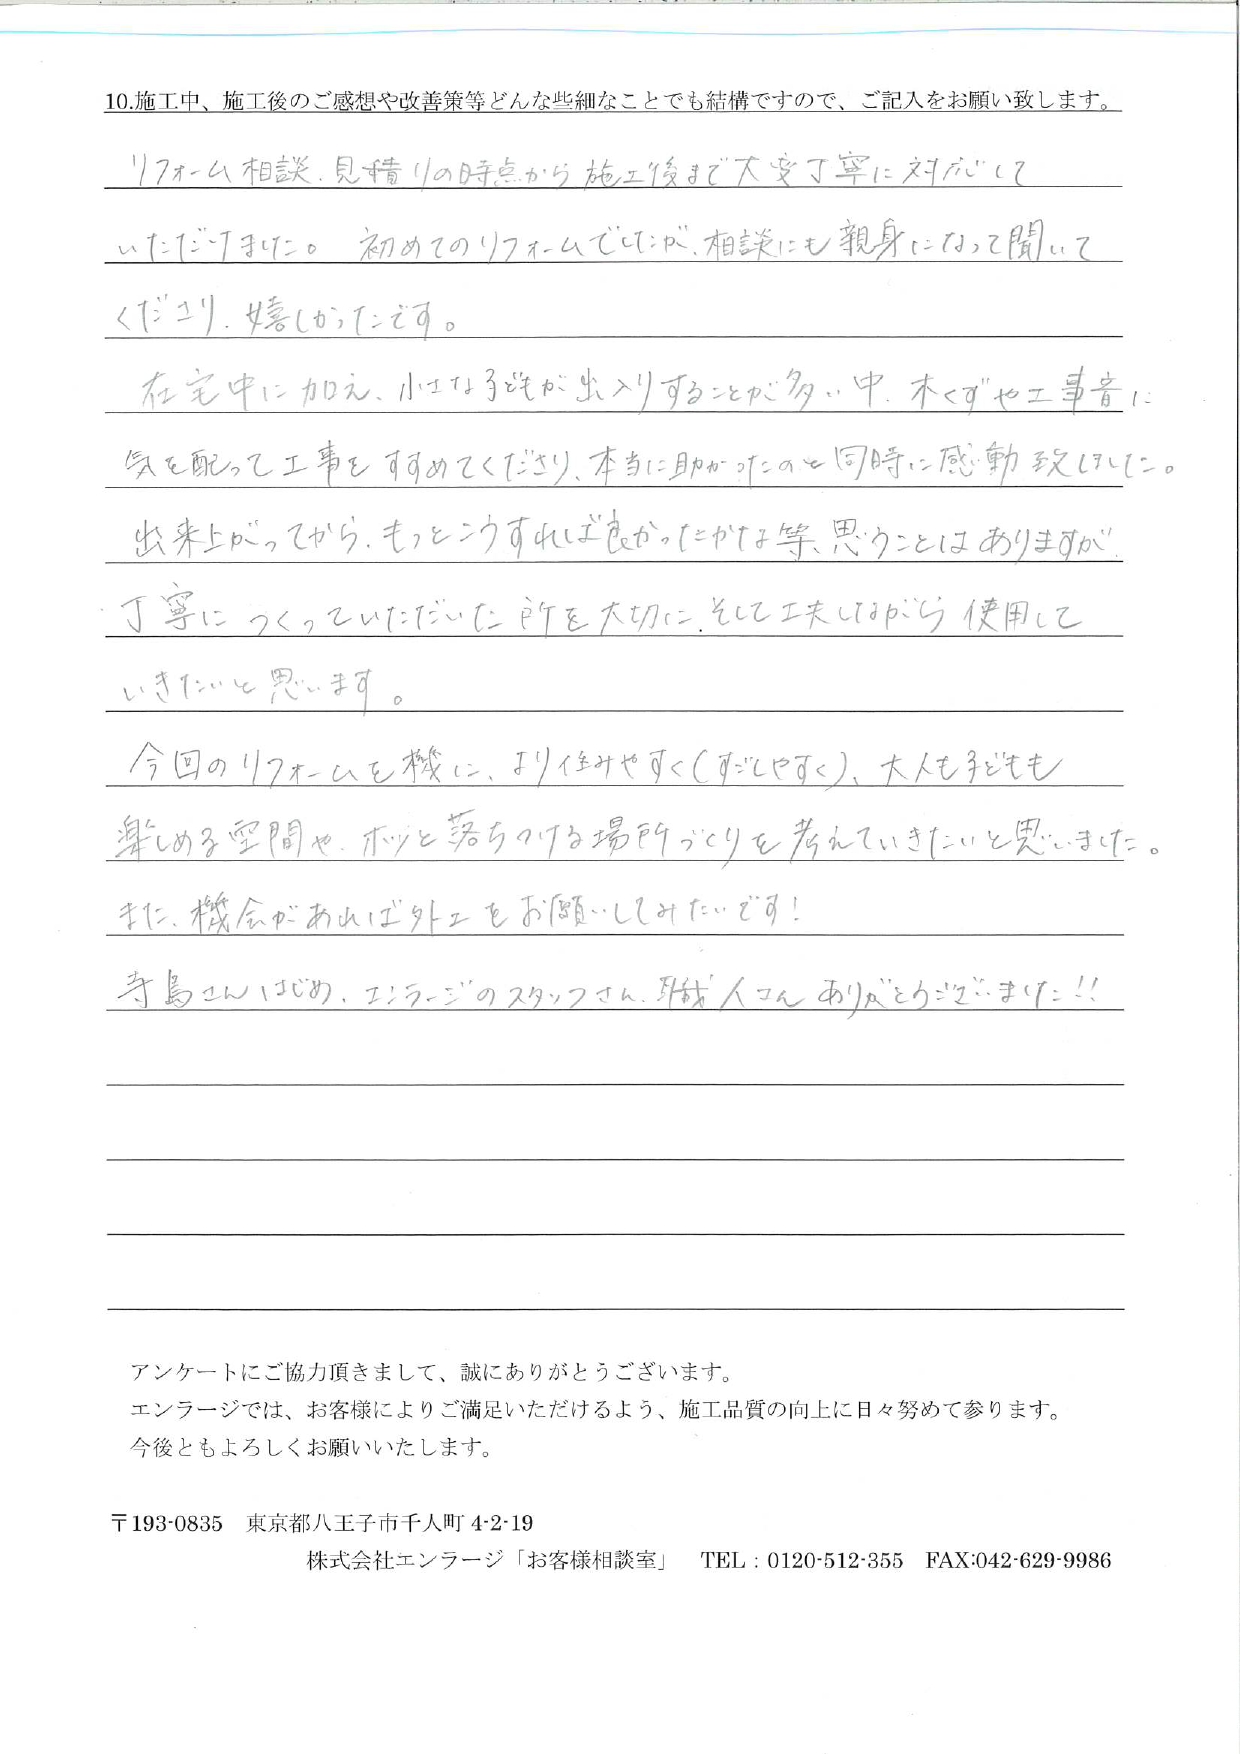 10.施工中、施工後のご感想や改善策等どんな些細なことでも結構ですので、ご記入をお願い致します。
リフォーム相談、見積りの時点から施工後まで大変丁寧に対応して
いただけました。 初めてのリフォームでしたが、相談にも親身になって聞いて
くださり、嬉しかったです。
在宅中に加え、小さな子どもが出入りすることが多い中、木くずや工事音に
気を配って工事をすすめてくださり、本当に助かったのと同時に感動致しました。
出来上がってから、もっとこうすれば良かったかな等、思うことはありますが、
丁寧につくっていただいた所を大切に、そして工夫しながら使用して
いきたいと思います。
今回のリフォームを機に、より住みやすく(すごしやすく)、大人も子どもも
楽しめる空間や、ホッと落ちつける場所づくりを考えていきたいと思いました。
また、機会があれば外エをお願いしてみたいです!
寺島さんはじめ、エンラージのスタッフさん、職人さんありがとうございました!!
アンケートにご協力頂きまして、誠にありがとうございます。
エンラージでは、お客様によりご満足いただけるよう、施工品質の向上に日々努めて参ります。
今後ともよろしくお願いいたします。
〒193-0835 東京都八王子市千人町 4-2-19
株式会社エンラージ「お客様相談室」 TEL:0120-512-355 FAX:042-629-9986